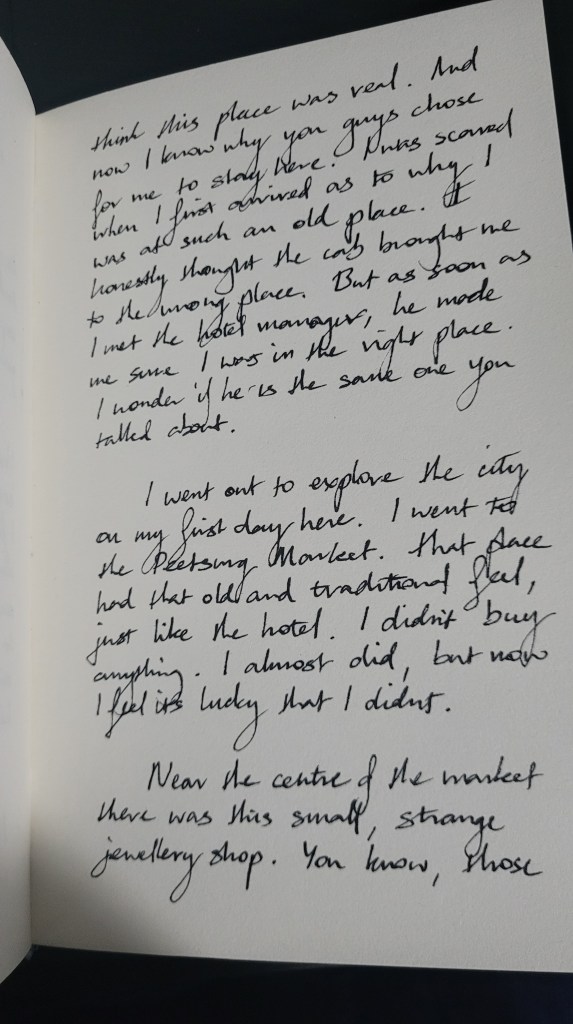 think this place was real. And
now I know why you guys chose
for me to stay here. I was scared
when I first arrived as to why I
was at such an old place. I
honestly thought the cab brought me
to the wrong place. But as soon as
I met the hotel manager, he made
me sure I was in the right place.
I wonder if he is the same one you
talked about.
I went out to explore the city
on my first day here. I went to
the Peetsung Market. That place
had that old and traditional feel,
just like the hotel. I didn't buy
anything. I almost did, but now
I feel it's lucky that I didn't.
Near the centre of the market
there was this small, strange
jewellery shop. You know, those